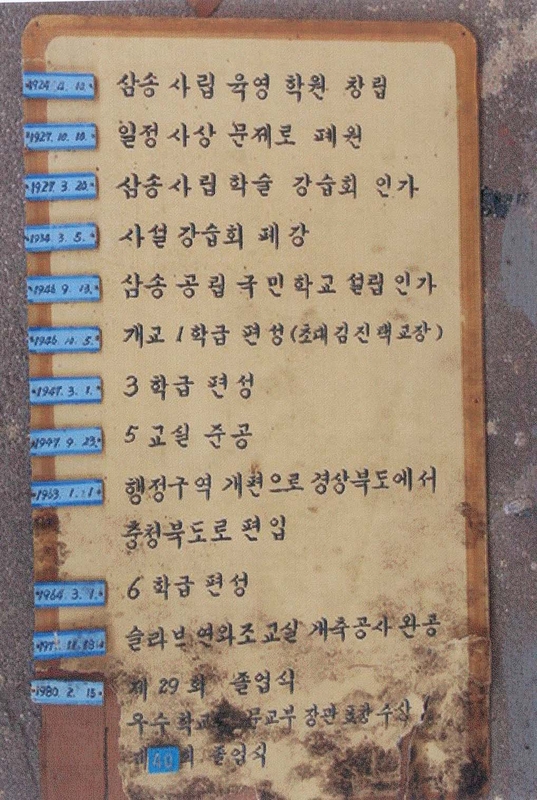 1924. 4. 10. 삼송 사립 육영 학원 창립
1927. 10. 10. 일정 사상 문제로 폐원
1927. 3. 20. 삼송 사립 학술 강습회 인가
1934. 3. 5. 사설 강습회 폐강
1946. 9. 13. 삼송 공립 국민학교 설립 인가
1946. 10. 5. 개교 1학급 편성(초대 김진택 교장)
1947. 3. 1. 3 학급 편성
1947. 9. 23. 5 교실 준공
1963. 1. 1. 행정구역 개편으로 경상북도에서
충청북도로 편입
1964. 3. 1. 6 학급 편성
슬라브 연와조 교실 개축공사 완공
1980. 2. 15. 제 29 회 졸업식
우수 학교 문교부 장관 표창 수상
40 회 졸업식